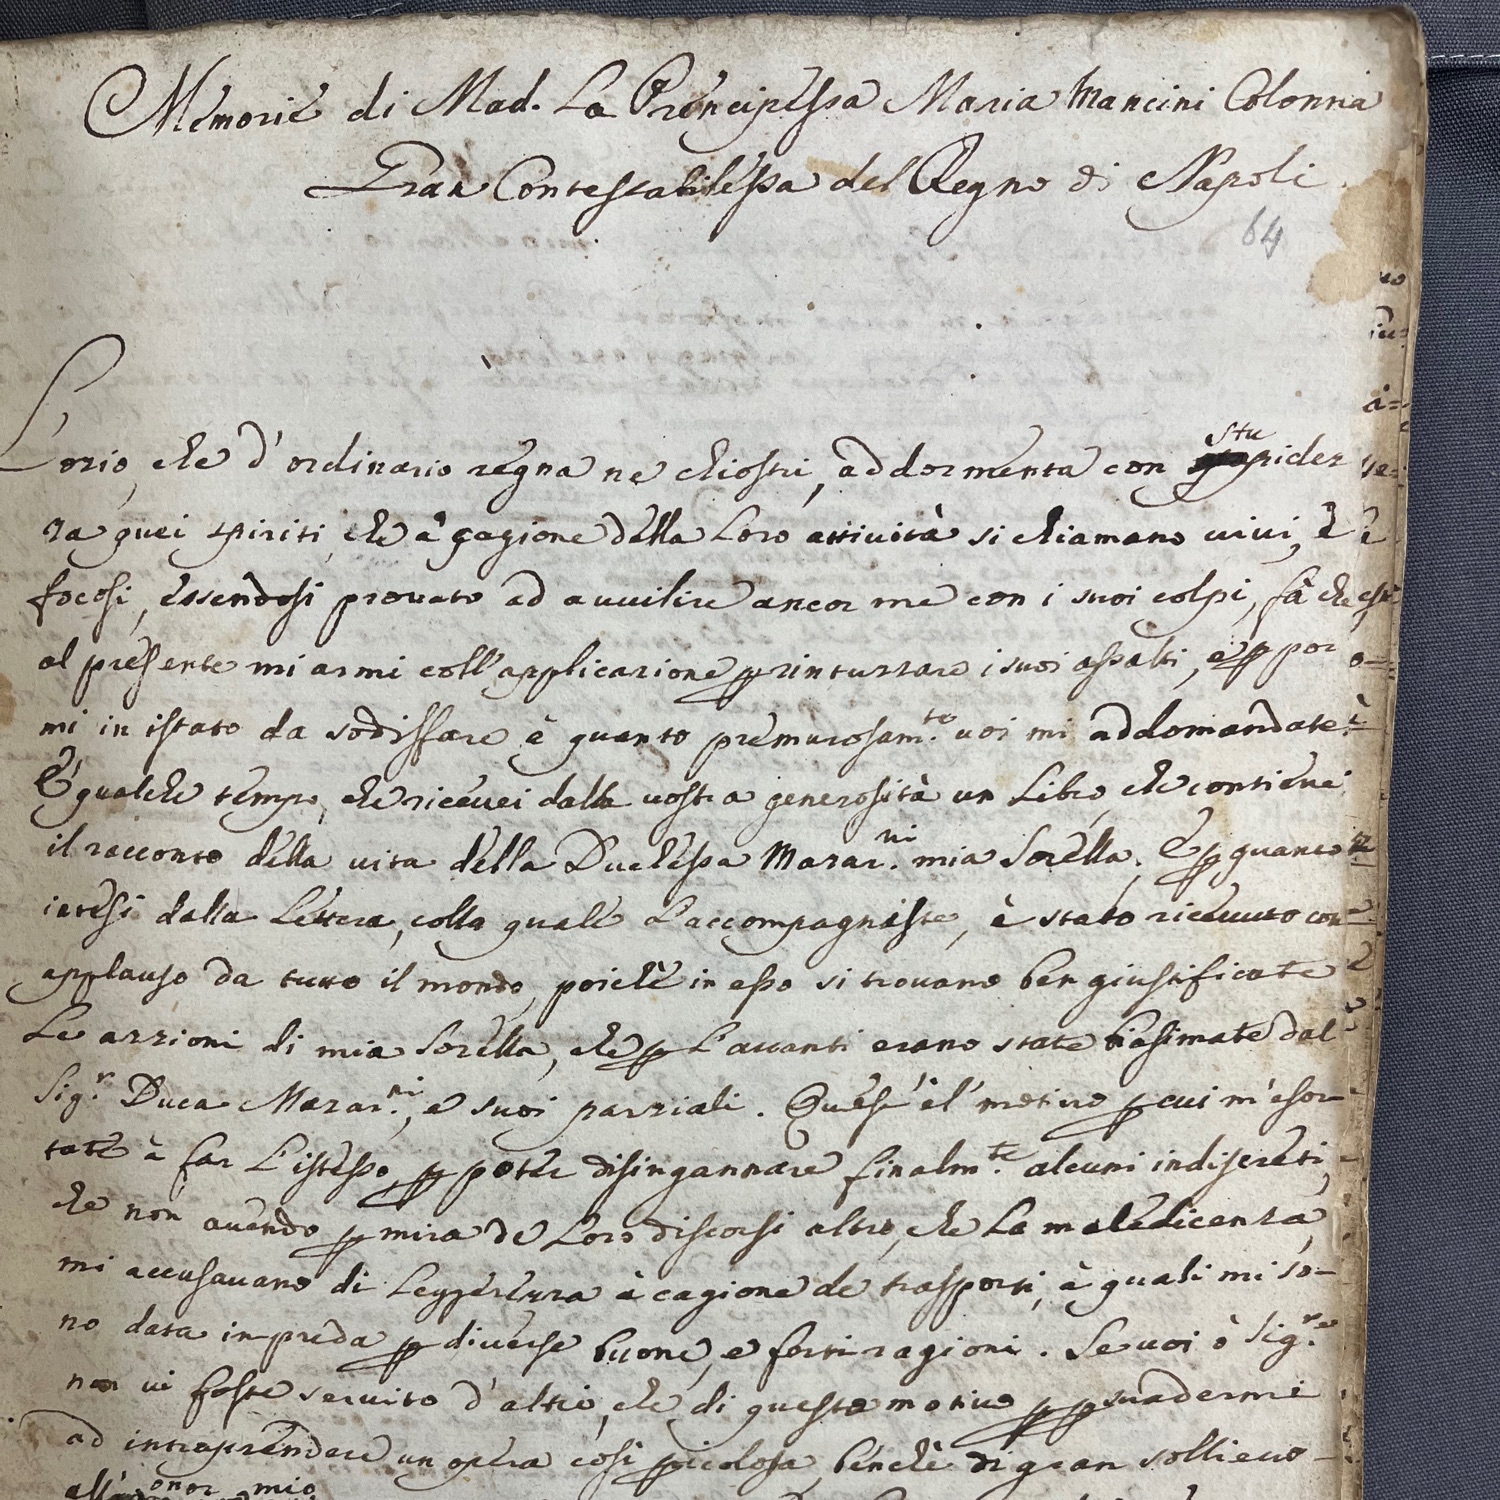 Memorie di Mad. La Prencipessa Maria Mancini Colonna
Gran Contestabilessa del Regno di Napoli
64
L'ozio, che d'ordinario regna ne chiostri, addormenta con stupidez
za quei spiriti che à cagione della Loro attività si chiamano vivi, è
focosi, essendosi provato ad avvilire ancor me con i suoi colpi, fà che
al presente mi armi coll'applicazione p rintuzzare i suoi assalti, e p por
mi in istato da sodisfare à quanto premurosam.te voi mi addomandate.
È qualche tempo, che ricevei dalla vostra generosità un Libro, che contiene
il racconto della vita della Duchessa Mazar.ni mia Sorella. E p quanto
intesi dalla Lettera, colla quale L'accompagniste, è stato ricevuto con
applauso da tutto il mondo, poichè in esso si trovano ben giustificate
Le azzioni di mia Sorella, che p L'avanti erano state biasimate dal
Sig.r Duca Mazar.ni, e suoi parziali. Quest'è l'motivo p cui m'esor
tate à far L'istesso p poter disingannare finalm.te alcuni indiscreti,
che non avendo p mira de Loro discorsi altro, che La maledicenza,
mi accusavano di Leggerezza à cagione de trasporti, à quali mi so-
no data in preda p diverse buone, e forti ragioni. Se voi ò Sig.re
non vi foste servito d'altro, che di questo motivo p psuadermi
ad intraprendere un opera così picolosa, benchè di gran sollievo
all' onor mio